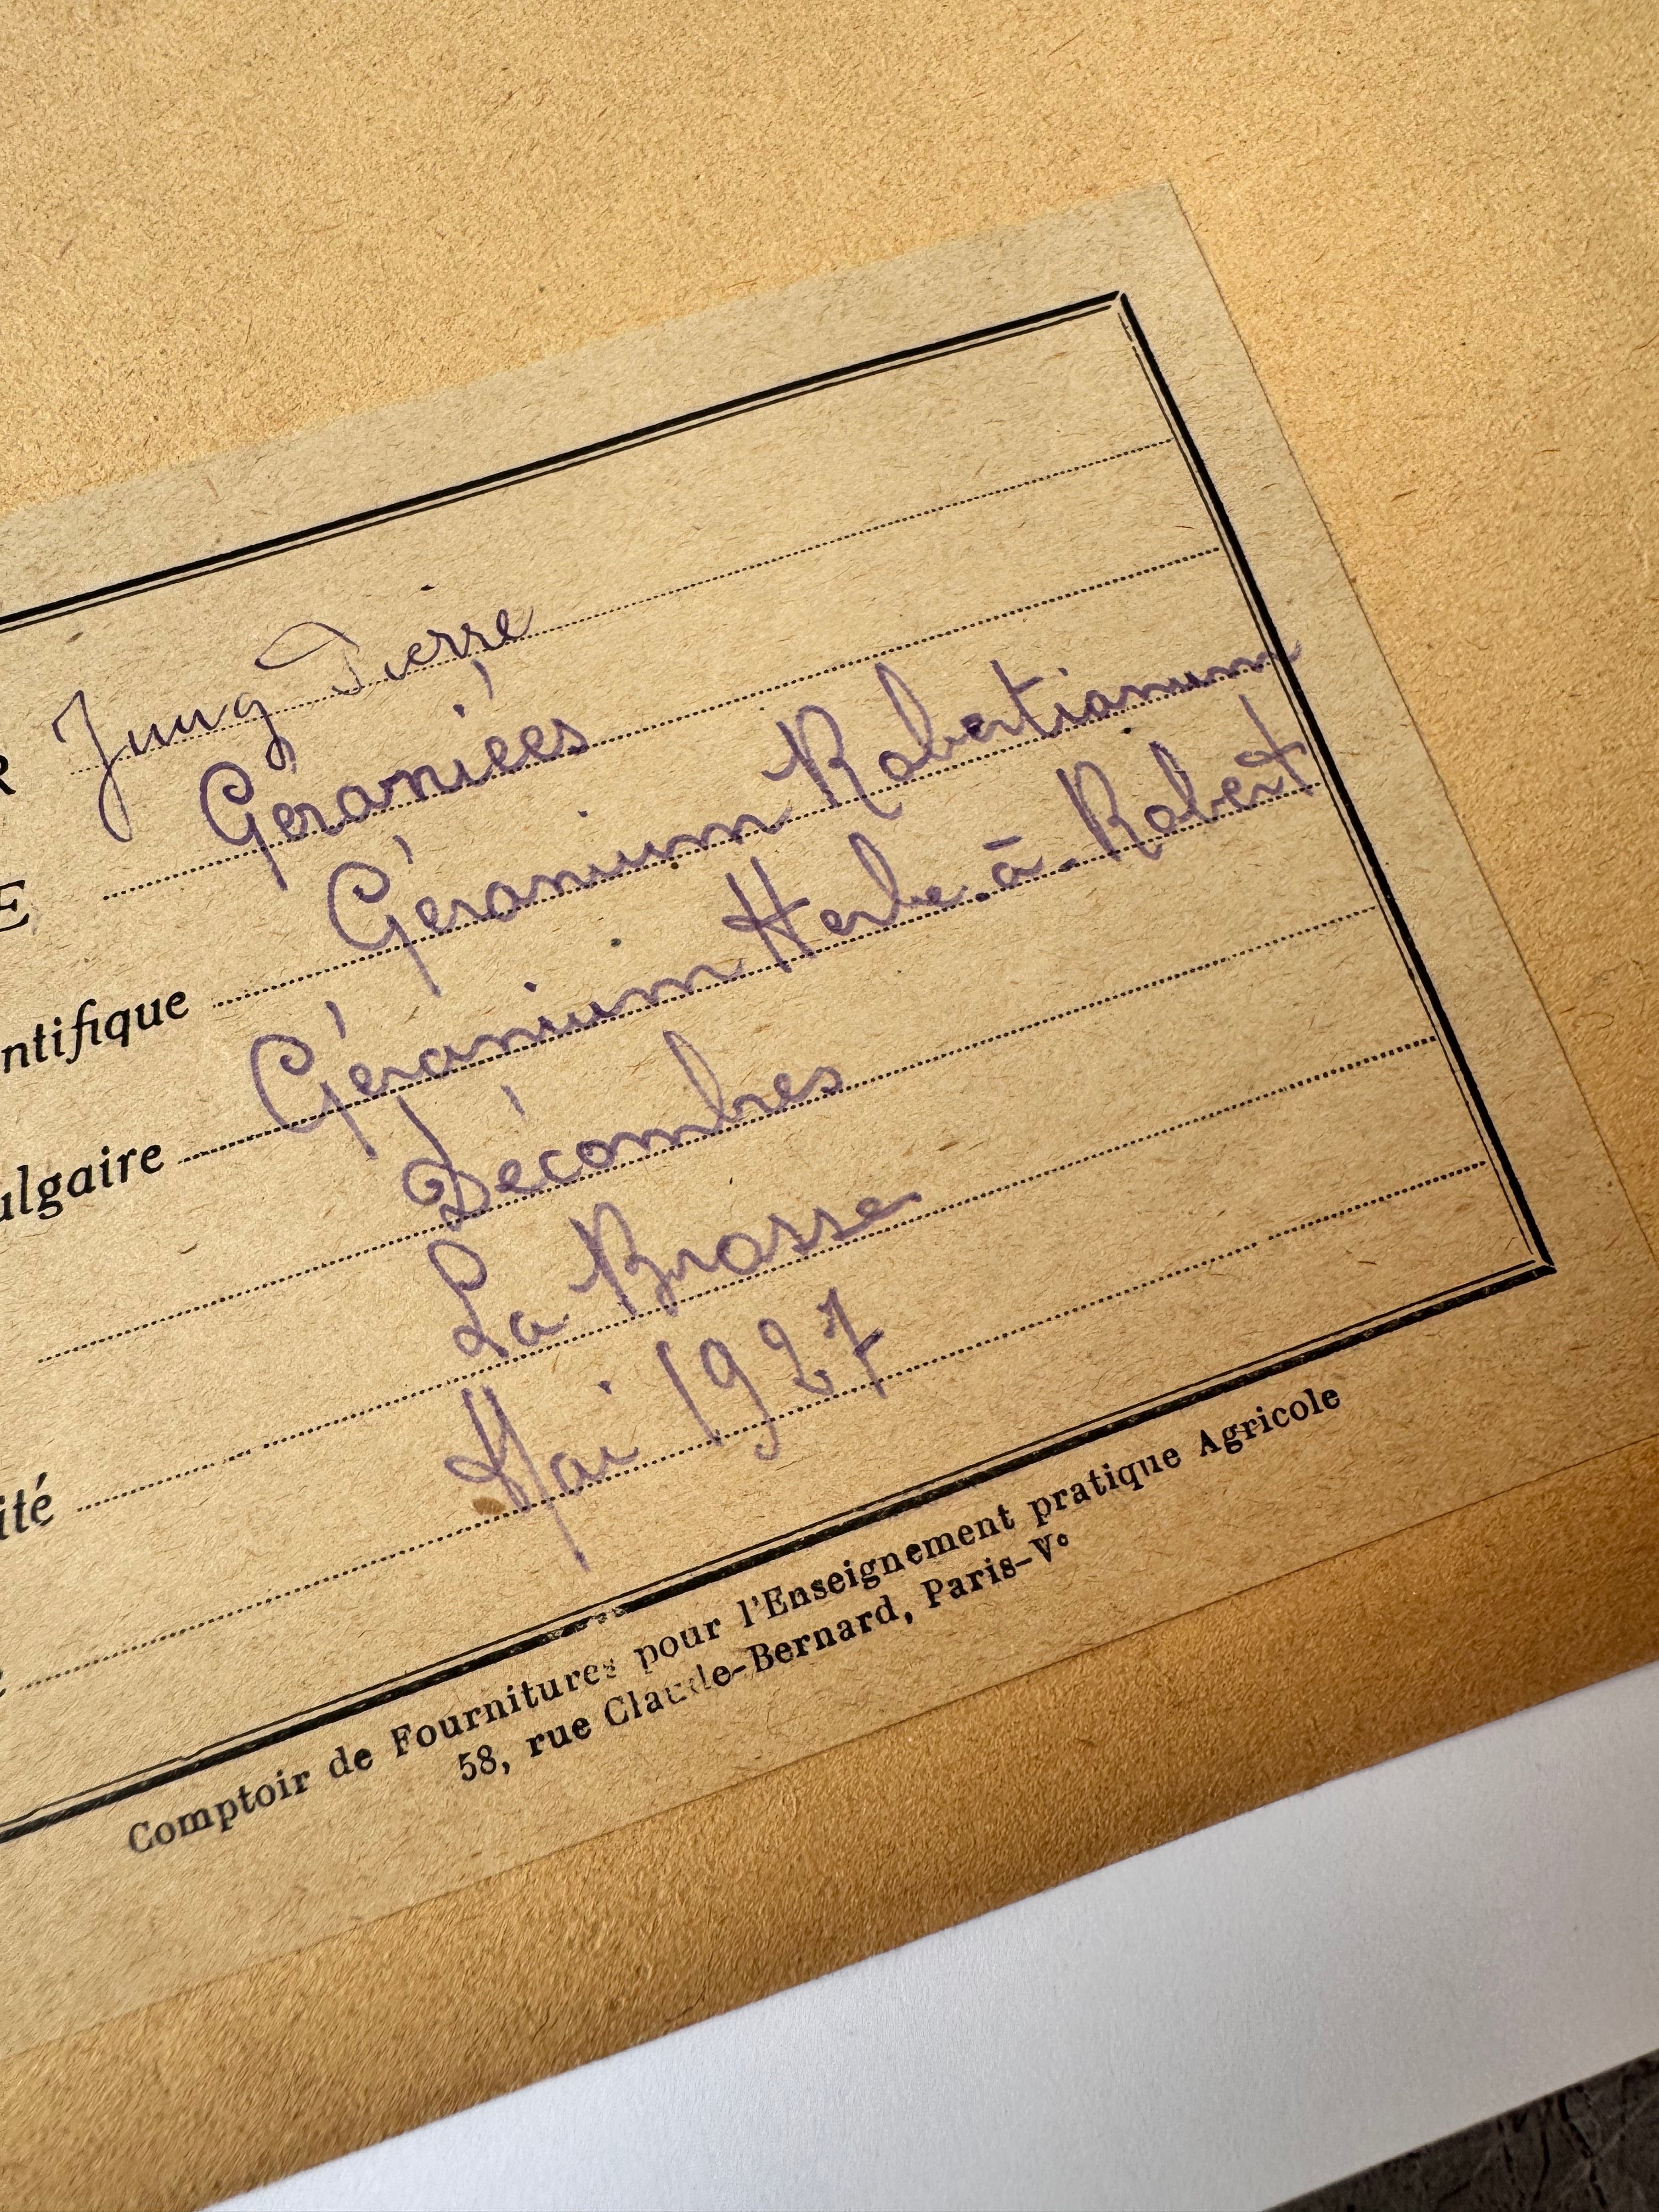 R Jung Pierre
E Géraniées
ntifique Géranium Robertianum
ulgaire Géranium Herbe-à-Robert
Décombres
ité La Brosse
e Mai 1927
Comptoir de Fournitures pour l'Enseignement pratique Agricole
58, rue Claude-Bernard, Paris-V°